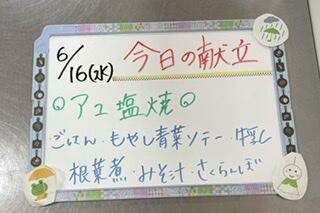 6/16(水) 今日の献立
◎アユ塩焼◎
・ごはん・もやし青菜ソテー・牛乳
根菜煮・みそ汁・さくらんぼ